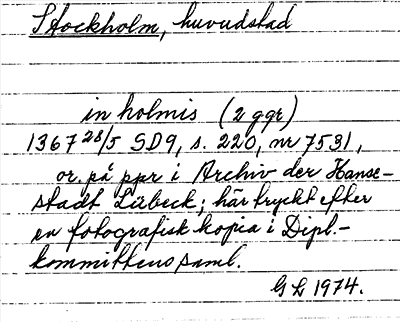 Stockholm, huvudstad
in holmis (2 ggr)
1367 28/5 SD9, s. 220, nr 7531,
or. på ppr i Archiv der Hanse-
stadt Lübeck; här tryckt efter
en fotografisk kopia i Dipl.-
kommitténs saml.
GL 1974.